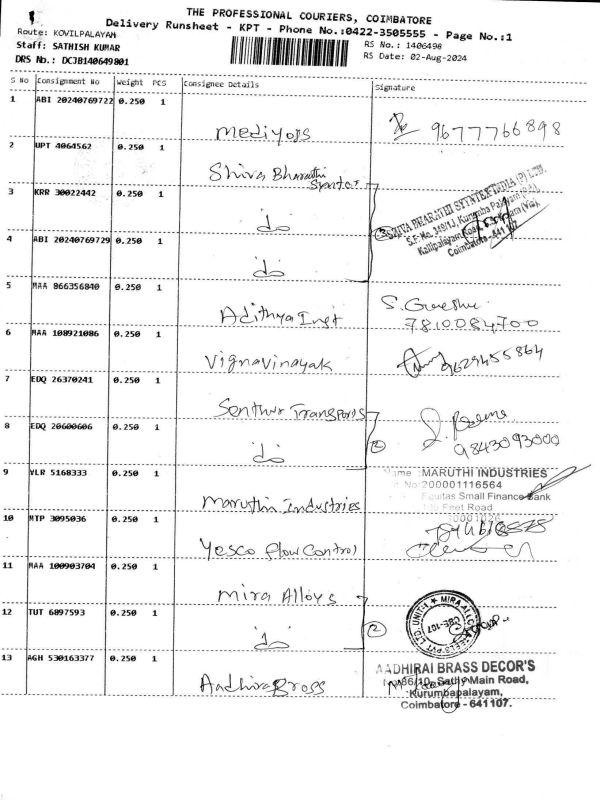 THE PROFESSIONAL COURIERS, COIMBATORE
Delivery Runsheet - KPT - Phone No.:0422-3505555 - Page No.:1
Route: KOVILPALAYAM
RS No.: 1406498
Staff: SATHISH KUMAR
RS Date: 02-Aug-2024
DRS No.: DCJB140649801
S No Consignment No Weight PCS Consignee Details Signature
1 ABI 20240769722 0.250 1
Mediyojs 9677766898
2 UPT 4064562 0.250 1
Shiva Bharathi
Syntex
3 KRR 30022442 0.250 1
do
SHIVA BHARATHI SYNTEX INDIA (P) LTD.
S.F. No. 349/13, Kurumba Palayam (P.O),
Kallipalayam Road,
Coimbatore - 641 107
4 ABI 20240769729 0.250 1
do
5 MAA 866356840 0.250 1
Adithya Inst S. Ganesh
7810084700
6 MAA 108921086 0.250 1
Vignavinayak 9629455864
7 EDQ 26370241 0.250 1
Senthur Transports
8 EDQ 20600606 0.250 1
do 2 9843093000
9 VLR 5168333 0.250 1
Name : MARUTHI INDUSTRIES
No: 200001116564
Equitas Small Finance Bank
100 Feet Road
Maruthi Industries
10 MTP 3095036 0.250 1
Yesco Flow Control
11 MAA 100903704 0.250 1
Mira Alloys
12 TUT 6897593 0.250 1
do 2
MIRA ALLOY STEELS PVT LTD. UNIT-I
CBE-107
13 AGH 530163377 0.250 1
Aadhira Brass
AADHIRAI BRASS DECOR'S
86/10, Sathy Main Road,
Kurumbapalayam,
Coimbatore - 641107.